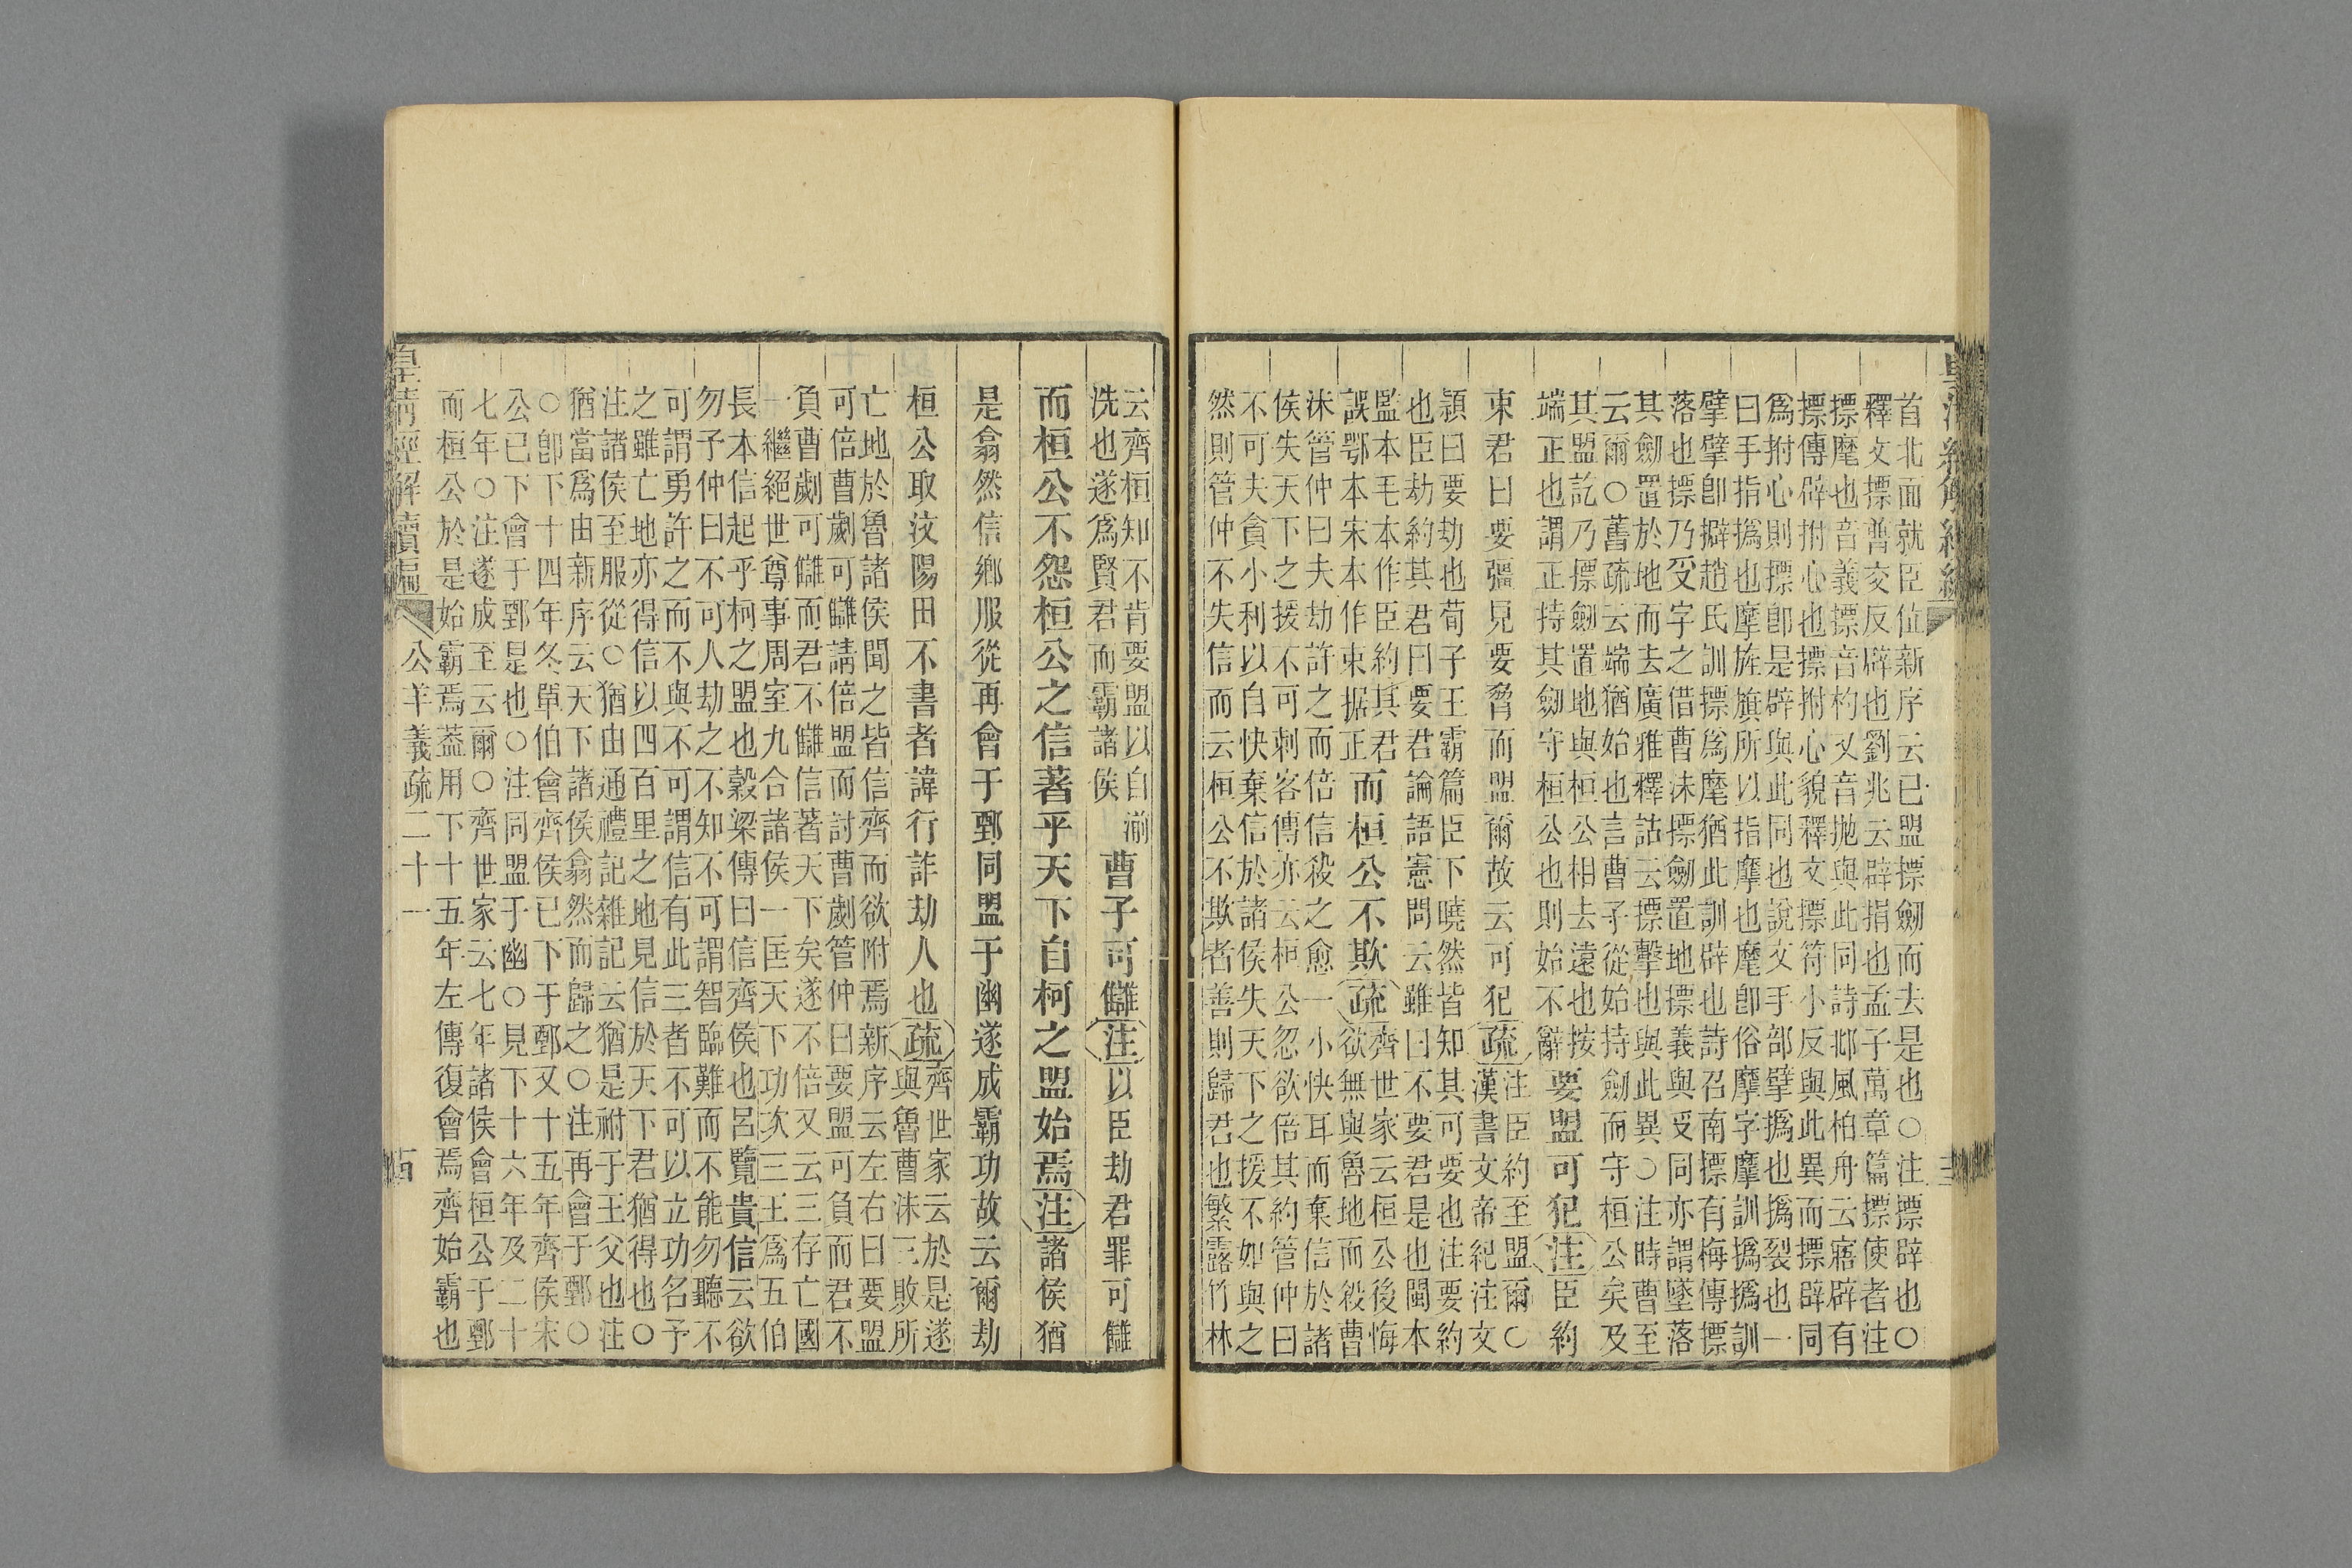 首北面就臣位新序云已盟摽劒而去是也○注摽辟也○
釋文摽普交反辟也劉兆云辟捐也孟子萬章篇摽使者注
摽麾也音義摽音杓又音抛與此同詩邶風柏舟云寤辟有
摽傳辟拊心也摽拊心貌釋文摽符小反與此異而摽辟同
爲拊心則摽卽是辟與此同也說文手部擘撝也撝裂也一
曰手指撝也摩旌旗所以指摩也麾卽俗摩字摩訓撝撝訓
擘擘卽擗趙氏訓摽爲麾猶此訓辟也詩召南摽有梅傳摽
落也摽乃受字之借曹沬摽劒置地摽義與受同亦謂墜落
其劒置於地而去廣雅釋詁云摽擊也與此異○注時曹至
云爾○舊疏云端猶始也言曹子從始持劒而守桓公矣及
其盟訖乃摽劒置地與桓公相去遠也按
端正也謂正持其劒守桓公也則始不辭
要盟可犯注臣約
束君曰要彊見要脅而盟爾故云可犯
疏注臣約至盟爾○
漢書文帝紀注文
潁曰要劫也荀子王霸篇臣下曉然皆知其可要也注要約
也臣劫約其君曰要君論語憲問云雖曰不要君是也閩本
監本毛本作臣約其君
誤鄂本宋本作束据正
而桓公不欺
疏齊世家云桓公後悔
欲無與魯地而殺曹
沬管仲曰夫劫許之而倍信殺之愈一小快耳而棄信於諸
侯失天下之援不可刺客傳亦云桓公忽欲倍其約管仲曰
不可夫貪小利以自快棄信於諸侯失天下之援不如與之
然則管仲不失信而云桓公不欺者善則歸君也繁露竹林
云齊桓知不肯要盟以自湔
洗也遂爲賢君而霸諸侯
曹子可讎注以臣劫君罪可讎
而桓公不怨桓公之信著乎天下自柯之盟始焉注諸侯猶
是翕然信鄉服從再會于鄄同盟于幽遂成霸功故云爾劫
桓公取汶陽田不書者諱行詐劫人也
疏齊世家云於是遂
與魯曹沬三敗所
亡地於魯諸侯聞之皆信齊而欲附焉新序云左右曰要盟
可倍曹劌可讎請倍盟而討曹劌管仲曰要盟可負而君不
負曹劌可讎而君不讎信著天下矣遂不倍又云三存亡國
一繼絕世尊事周室九合諸侯一匡天下功次三王爲五伯
長本信起乎柯之盟也穀梁傳曰信齊侯也呂覽貴信云欲
勿予仲曰不可人劫之不知不可謂智臨難而不能勿聽不
可謂勇許之而不與不可謂信有此三者不可以立功名予
之雖亡地亦得信以四百里之地見信於天下君猶得也○
注諸侯至服從○猶由通禮記雜記云猶是祔于王父也注
猶當爲由新序云天下諸侯翕然而歸之○注再會于鄄○
○卽下十四年冬單伯會齊侯已下于鄄又十五年齊侯宋
公已下會于鄄是也○注同盟于幽○見下十六年及二十
七年○注遂成至云爾○齊世家云七年諸侯會桓公于鄄
而桓公於是始霸焉葢用下十五年左傳復會焉齊始霸也
皇清經解續編
公羊義疏二十一